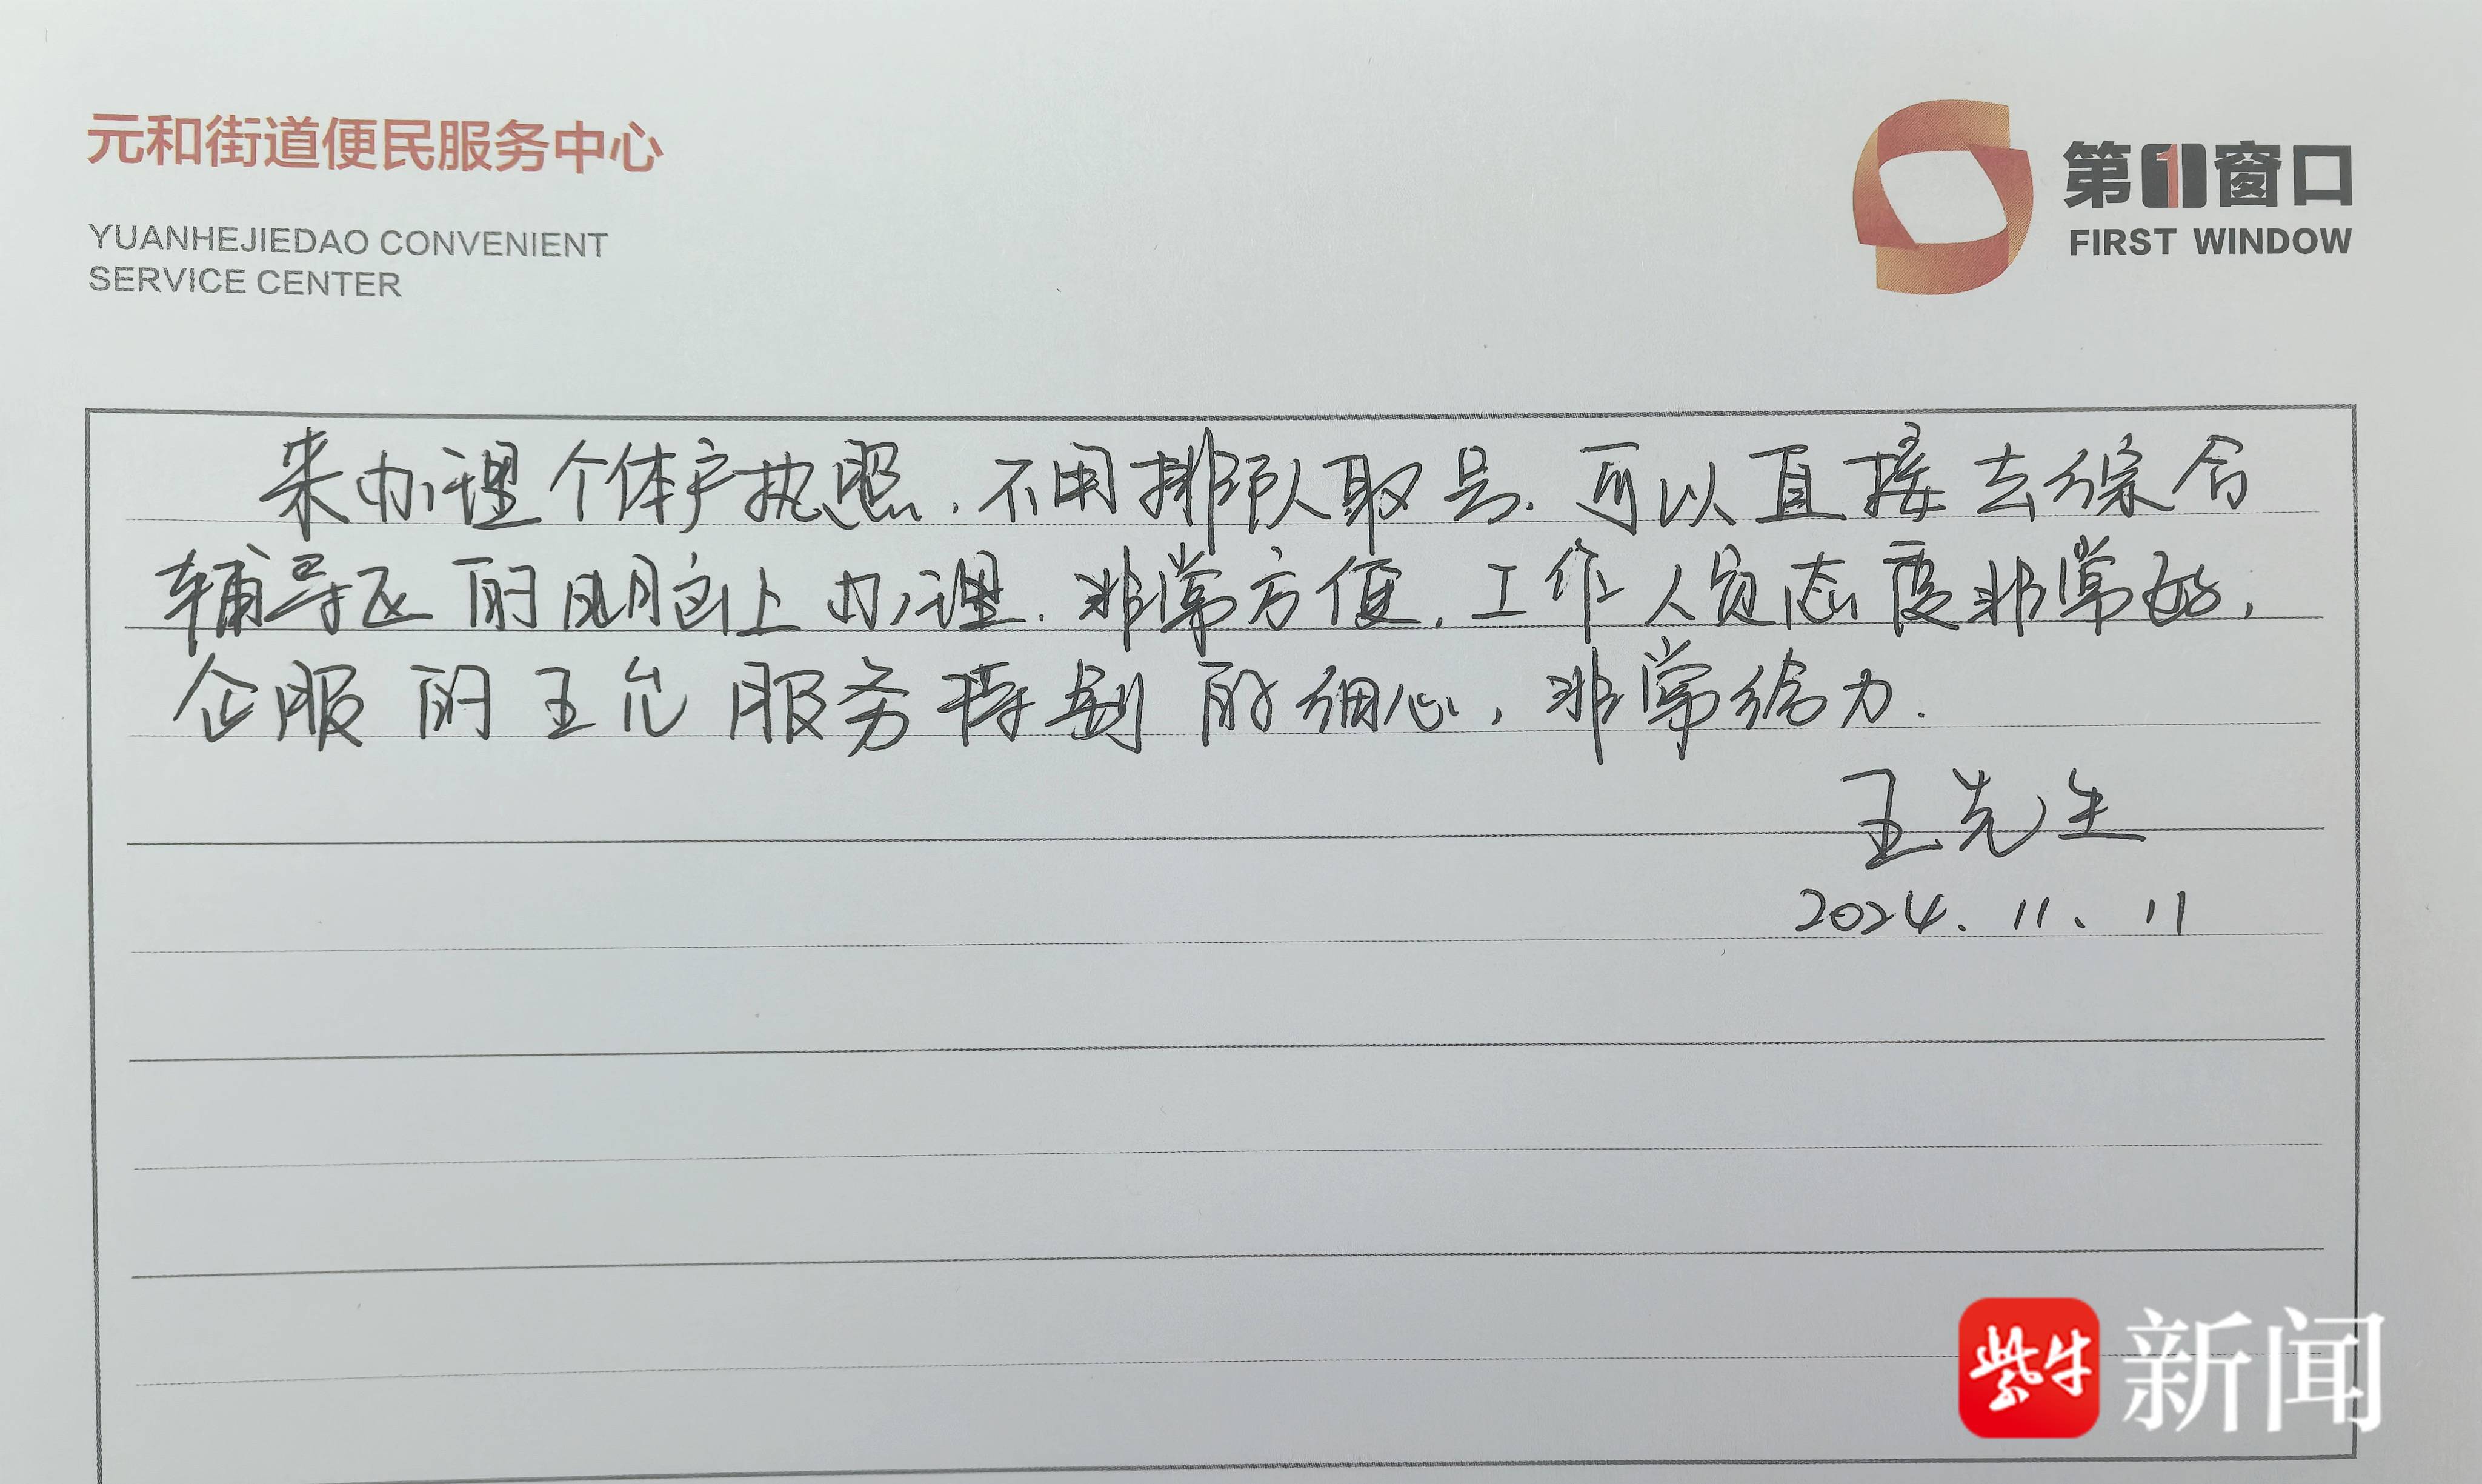 元和街道便民服务中心
YUANHEJIEDAO CONVENIENT
SERVICE CENTER
第1窗口
FIRST WINDOW
来办理个体户执照.不用排队取号.可以直接去综合
辅导区的电脑上办理.非常方便.工作人员态度非常好,
企服的王允服务特别的细心,非常给力.
王先生
2024.11.11
紫牛新闻